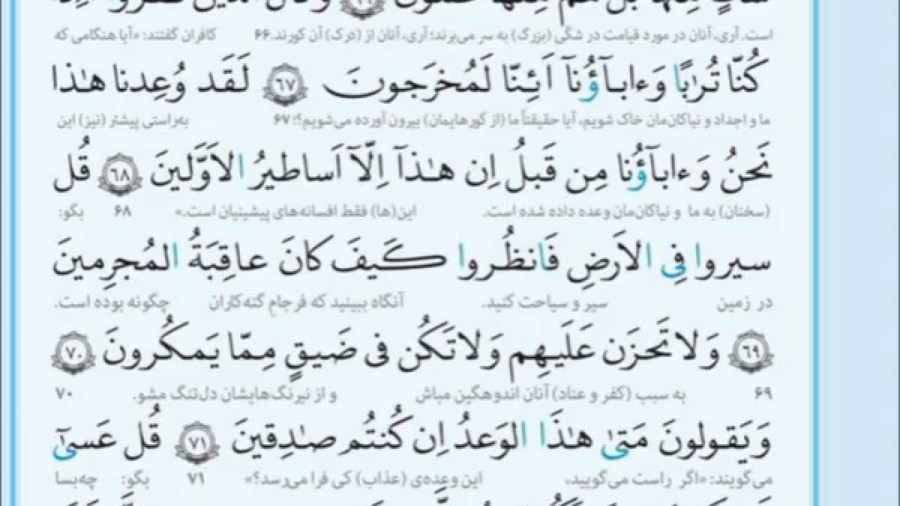 است. آری، آنان در مورد قیامت در شکّی (بزرگ) به سر می‌برند؛ آری، آنان از (درک) آن کورند. ۶۶ کافران گفتند: «آیا هنگامی که
كُنّا تُرٰبًا وَءابآؤُنآ اَئِنّا لَمُخرَجونَ ﴿٦٧﴾ لَقَد وُعِدنا هٰذا
ما و اجداد و نیاکان‌مان خاک شویم، آیا حقیقتاً ما (از گورهایمان) بیرون آورده می‌شویم؟! ۶۷ به‌راستی پیشتر (نیز) این
نَحنُ وَءابآؤُنا مِن قَبلُ اِن هٰذآ اِلّآ اَساطيرُ الاَوَّلينَ ﴿٦٨﴾ قُل
(سخنان) به ما و نیاکان‌مان وعده داده شده است. این(ها) فقط افسانه‌های پیشینیان است.» ۶۸ بگو:
سيروا فِى الاَرضِ فَانظُروا كَيفَ كانَ عاقِبَةُ المُجرِمينَ
در زمین سیر و سیاحت کنید. آنگاه ببینید که فرجام گنه‌کاران چگونه بوده است.
﴿٦٩﴾ وَلا تَحزَن عَلَيهِم وَلا تَكُن فى ضَيقٍ مِمّا يَمكُرونَ ﴿٧٠﴾
۶۹ به سبب (کفر و عناد) آنان اندوهگین مباش و از نیرنگ‌هایشان دل‌تنگ مشو. ۷۰
وَيَقولونَ مَتىٰ هٰذَا الوَعدُ اِن كُنتُم صٰدِقينَ ﴿٧١﴾ قُل عَسىٰٓ
می‌گویند: «اگر راست می‌گویید، این وعده‌ی (عذاب) کی فرا می‌رسد؟» ۷۱ بگو: چه‌بسا